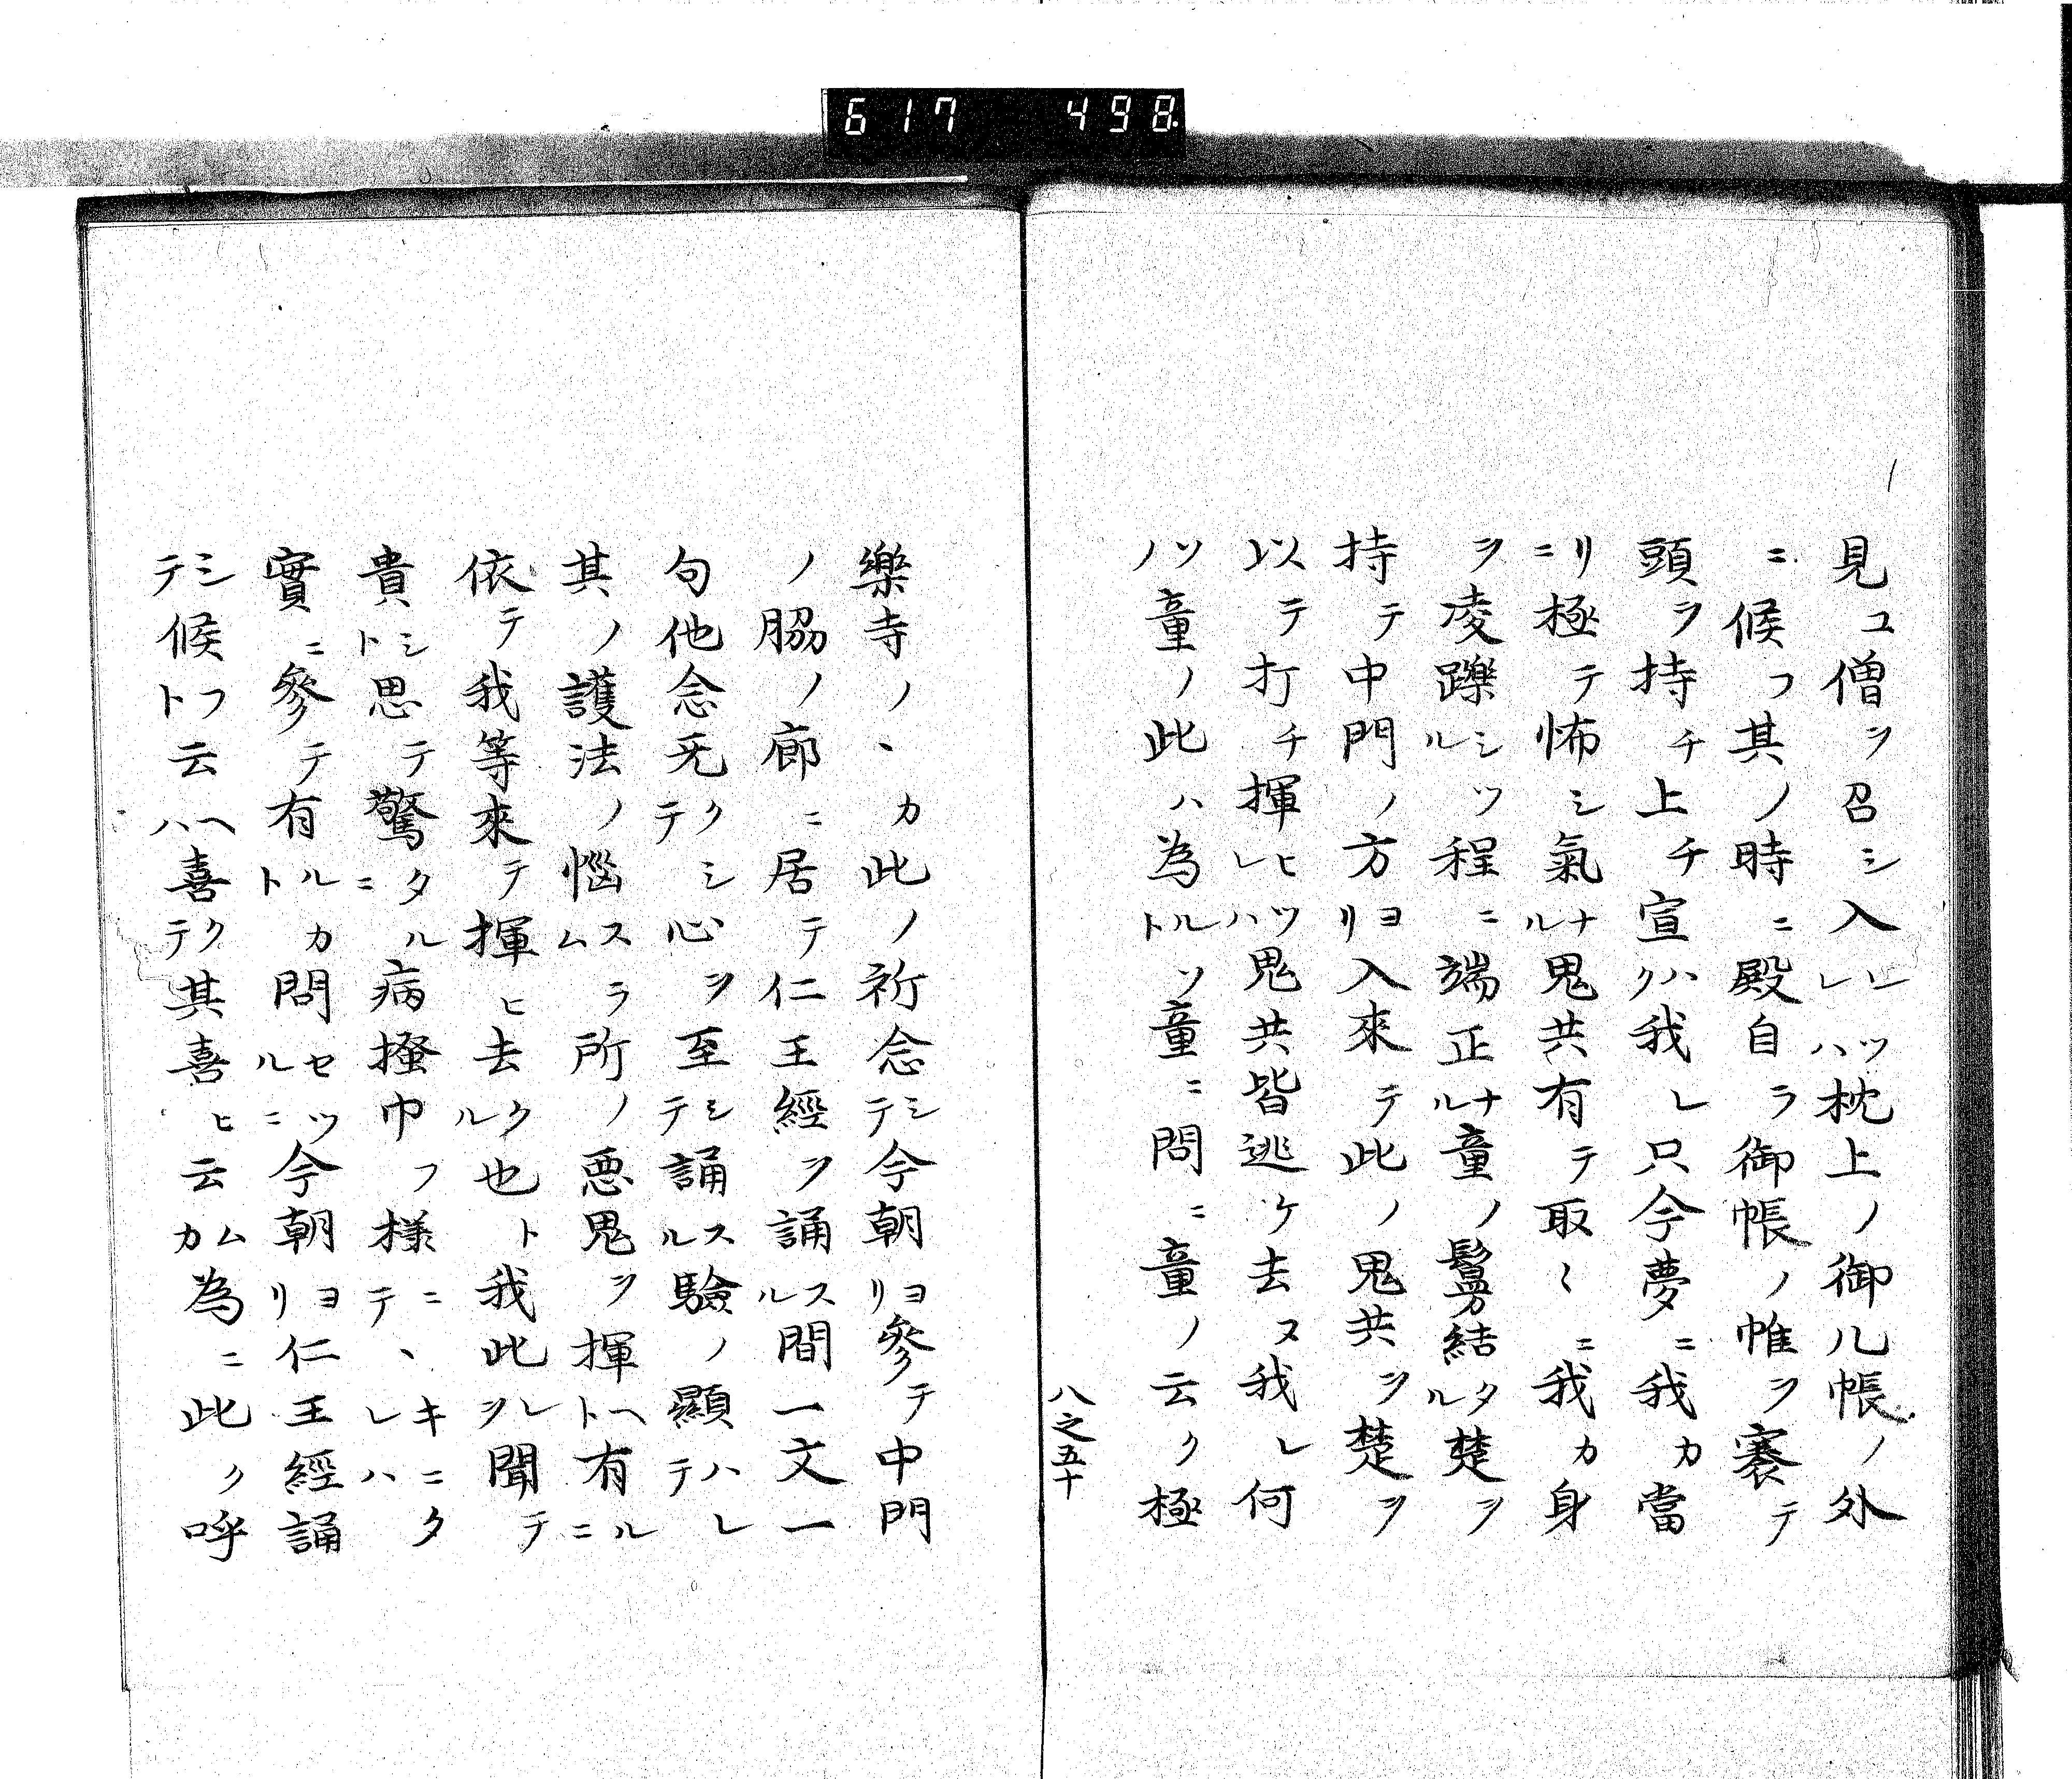 617 498
見ユ僧ヲ召シ入レツレハ枕上ノ御几帳ノ外
ニ候フ其ノ時ニ殿自ラ御帳ノ帷ヲ褰テ
頭ヲ持チ上チ宣ハク我レ只今夢ニ我カ當
リニ極テ怖シ氣ナル鬼共有テ取〻ニ我カ身
ヲ凌躒シツル程ニ端正ナル童ノ鬘結タル楚ヲ
持テ中門ノ方ヨリ入來テ此ノ鬼共ヲ楚ヲ
以テ打チ揮ヒツレハ鬼共皆逃ケ去ヌ我レ何
ツノ童ノ此ハ為ルトソ童ニ問ニ童ノ云ク極
八之五十
樂寺ノヽカ此ノ祈念シテ今朝ヨリ參テ中門
ノ脇ノ廊ニ居テ仁王經ヲ誦スル間一文一
句他念无クシテ心ヲ至シテ誦スル驗ノ顯ハレテ
其ノ護法ノ惱スラム所ノ惡鬼ヲ揮ヘト有ルニ
依テ我等來テ揮ヒ去クル也ト我此レヲ聞テ
貴シト思テ驚タルニ病搔巾フ樣ニテヽキニタレハ
實ニ參テ有ルカト問セツルニ今朝ヨリ仁王經誦
シテ候フト云ヘハ喜クテ其喜ヒ云ムカ為ニ此ク呼